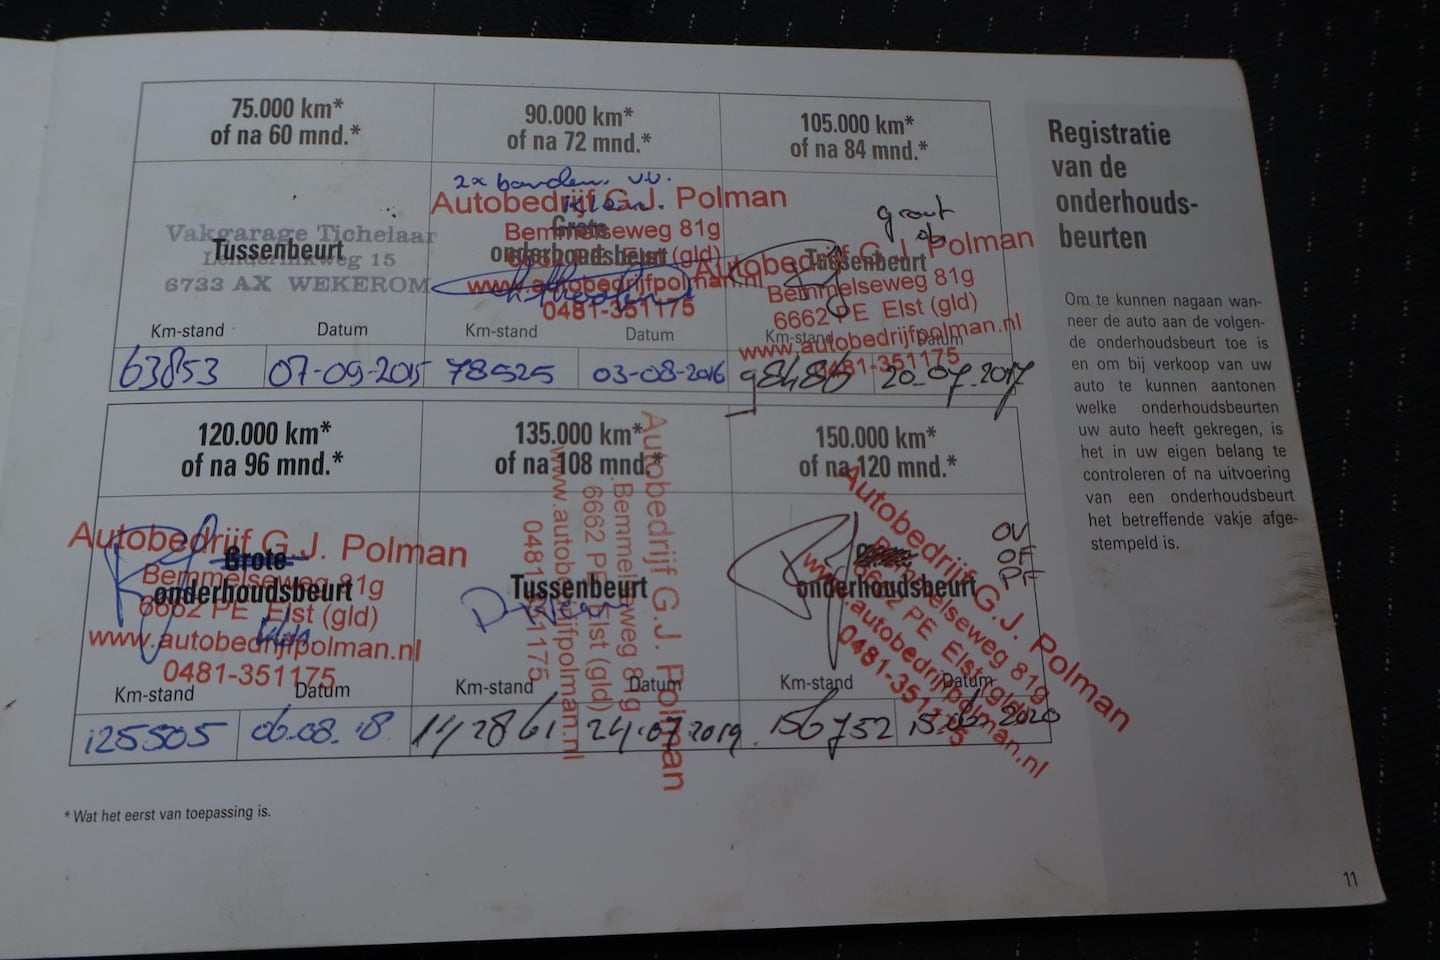 75.000 km*
of na 60 mnd.*
Vakgarage Tichelaar
Tussenbeurt
6733 AX WEKEROM
Km-stand
Datum
63853
07-09-2015
90.000 km*
of na 72 mnd.*
2x banden v.v.
klein.
Autobedrijf G.J. Polman
Grote
Bemmelseweg 81g
onderhoudsbeurt
6662 PE Elst (gld)
www.autobedrijfpolman.nl
0481-351175
Km-stand
Datum
78525
03-08-2016
105.000 km*
of na 84 mnd.*
groot
Autobedrijf G.J. Polman
Tussenbeurt
Bemmelseweg 81g
6662 PE Elst (gld)
www.autobedrijfpolman.nl
0481-351175
Km-stand
Datum
20-07-2017
120.000 km*
of na 96 mnd.*
Autobedrijf G.J. Polman
Grote
Bemmelseweg 81g
onderhoudsbeurt
6662 PE Elst (gld)
www.autobedrijfpolman.nl
0481-351175
Km-stand
Datum
125505
06.08.18
135.000 km*
of na 108 mnd.*
Autobedrijf G.J. Polman
Bemmelseweg 81g
6662 PE Elst (gld)
www.autobedrijfpolman.nl
0481-351175
Tussenbeurt
Km-stand
Datum
24.07.2019
150.000 km*
of na 120 mnd.*
OV
OF
PF
Autobedrijf G.J. Polman
Bemmelseweg 81g
onderhoudsbeurt
6662 PE Elst (gld)
www.autobedrijfpolman.nl
0481-351175
Km-stand
Datum
156752
15.06.2020
* Wat het eerst van toepassing is.
Registratie
van de
onderhouds-
beurten
Om te kunnen nagaan wan-
neer de auto aan de volgen-
de onderhoudsbeurt toe is
en om bij verkoop van uw
auto te kunnen aantonen
welke onderhoudsbeurten
uw auto heeft gekregen, is
het in uw eigen belang te
controleren of na uitvoering
van een onderhoudsbeurt
het betreffende vakje afge-
stempeld is.
11